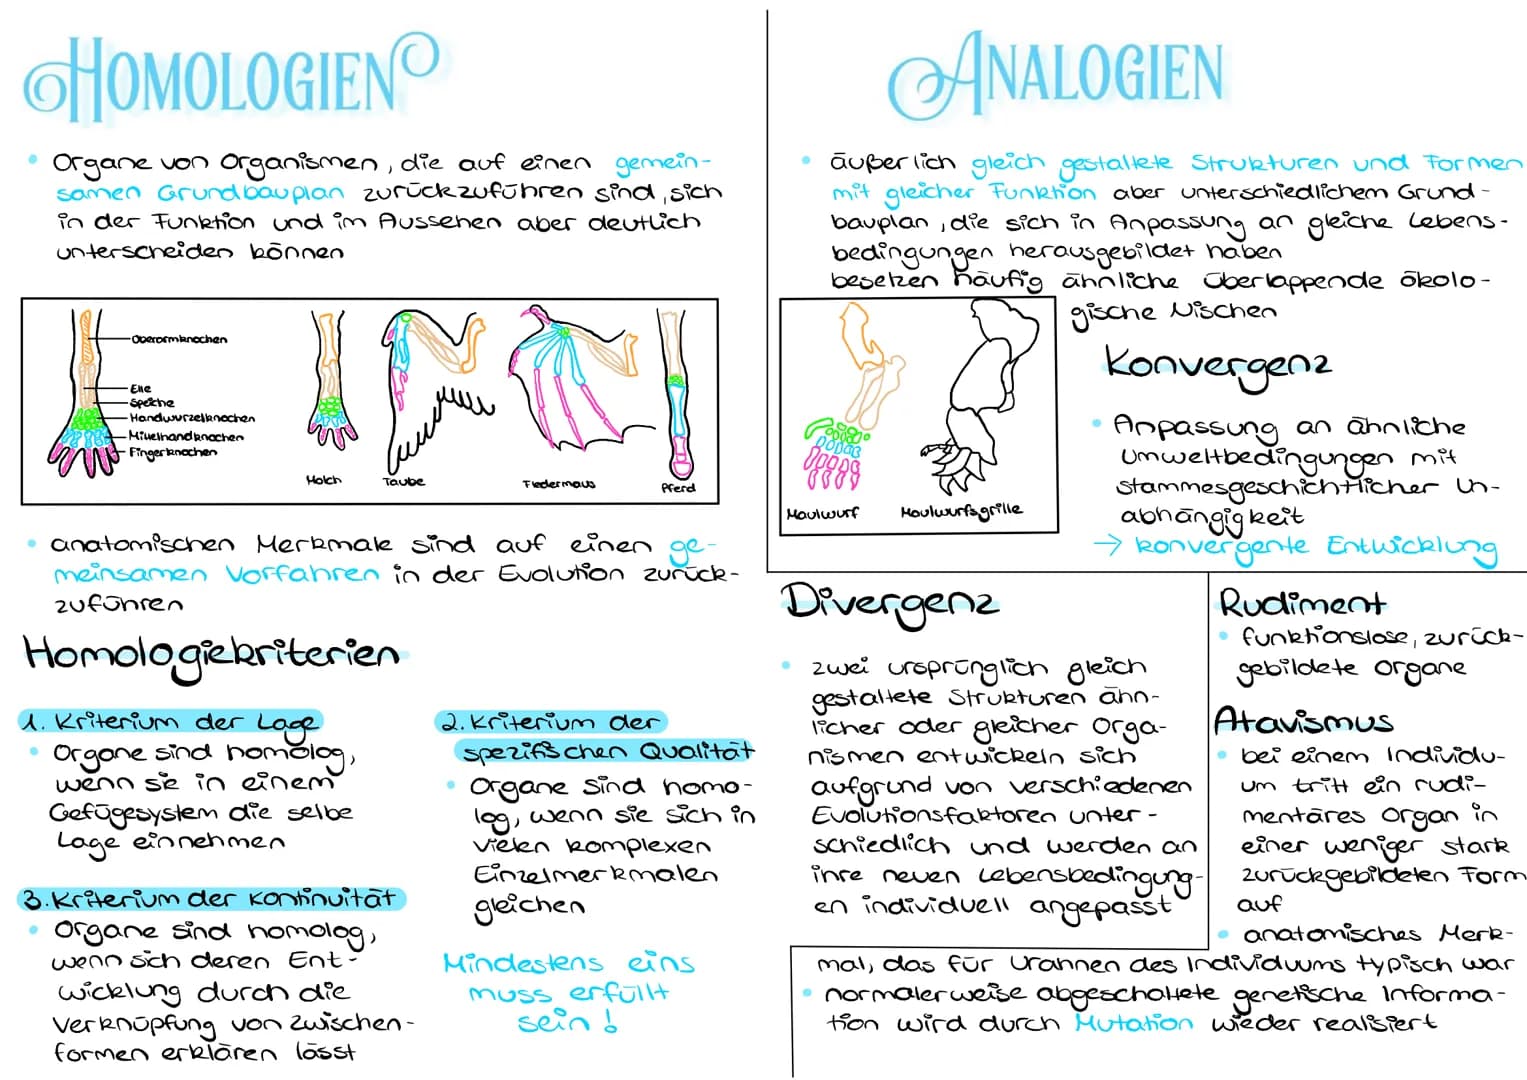 HOMOLOGIEN
• Organe von Organismen, die auf einen gemein-
samen Grundbauplan zurückzuführen sind, sich
in der Funktion und im Aussehen aber deutlich
unterscheiden können
Oberarmknochen
Elle
Speiche
Handwurzelknochen
Mittelhandknochen
Fingerknochen
Molch
Taube
Fledermaus
Pferd
• anatomischen Merkmale sind auf einen ge-
meinsamen Vorfahren in der Evolution zurück-
zuführen
Homologiekriterien
1. Kriterium der Lage
• Organe sind homolog,
wenn sie in einem
Gefügesystem die selbe
Lage einnehmen
2. Kriterium der
spezifischen Qualität
• Organe sind homo-
log, wenn sie sich in
vielen komplexen
Einzelmerkmalen
gleichen
3. Kriterium der Kontinuität
• Organe sind homolog,
wenn sich deren Ent-
wicklung durch die
Verknüpfung von Zwischen-
formen erklären lässt
Mindestens eins
muss erfüllt
sein!
ANALOGIEN
• äußerlich gleich gestaltete Strukturen und Formen
mit gleicher Funktion aber unterschiedlichem Grund-
bauplan, die sich in Anpassung an gleiche Lebens-
bedingungen herausgebildet haben
besetzen häufig ähnliche überlappende ökolo-
gische Nischen
Maulwurf
Maulwurfsgrille
Konvergenz
• Anpassung an ähnliche
Umweltbedingungen mit
stammesgeschichtlicher Un-
abhängigkeit
→ konvergente Entwicklung
Divergenz
• zwei ursprünglich gleich
gestaltete Strukturen ähn-
licher oder gleicher Orga-
nismen entwickeln sich
aufgrund von verschiedenen
Evolutionsfaktoren unter-
schiedlich und werden an
ihre neuen Lebensbedingung-
en individuell angepasst
Rudiment
• funktionslose, zurück-
gebildete Organe
Atavismus
• bei einem Individu-
um tritt ein rudi-
mentäres Organ in
einer weniger stark
zurückgebildeten Form
auf
• anatomisches Merk-
mal, das für Urahnen des Individuums typisch war
• normalerweise abgeschaltete genetische Informa-
tion wird durch Mutation wieder realisiert